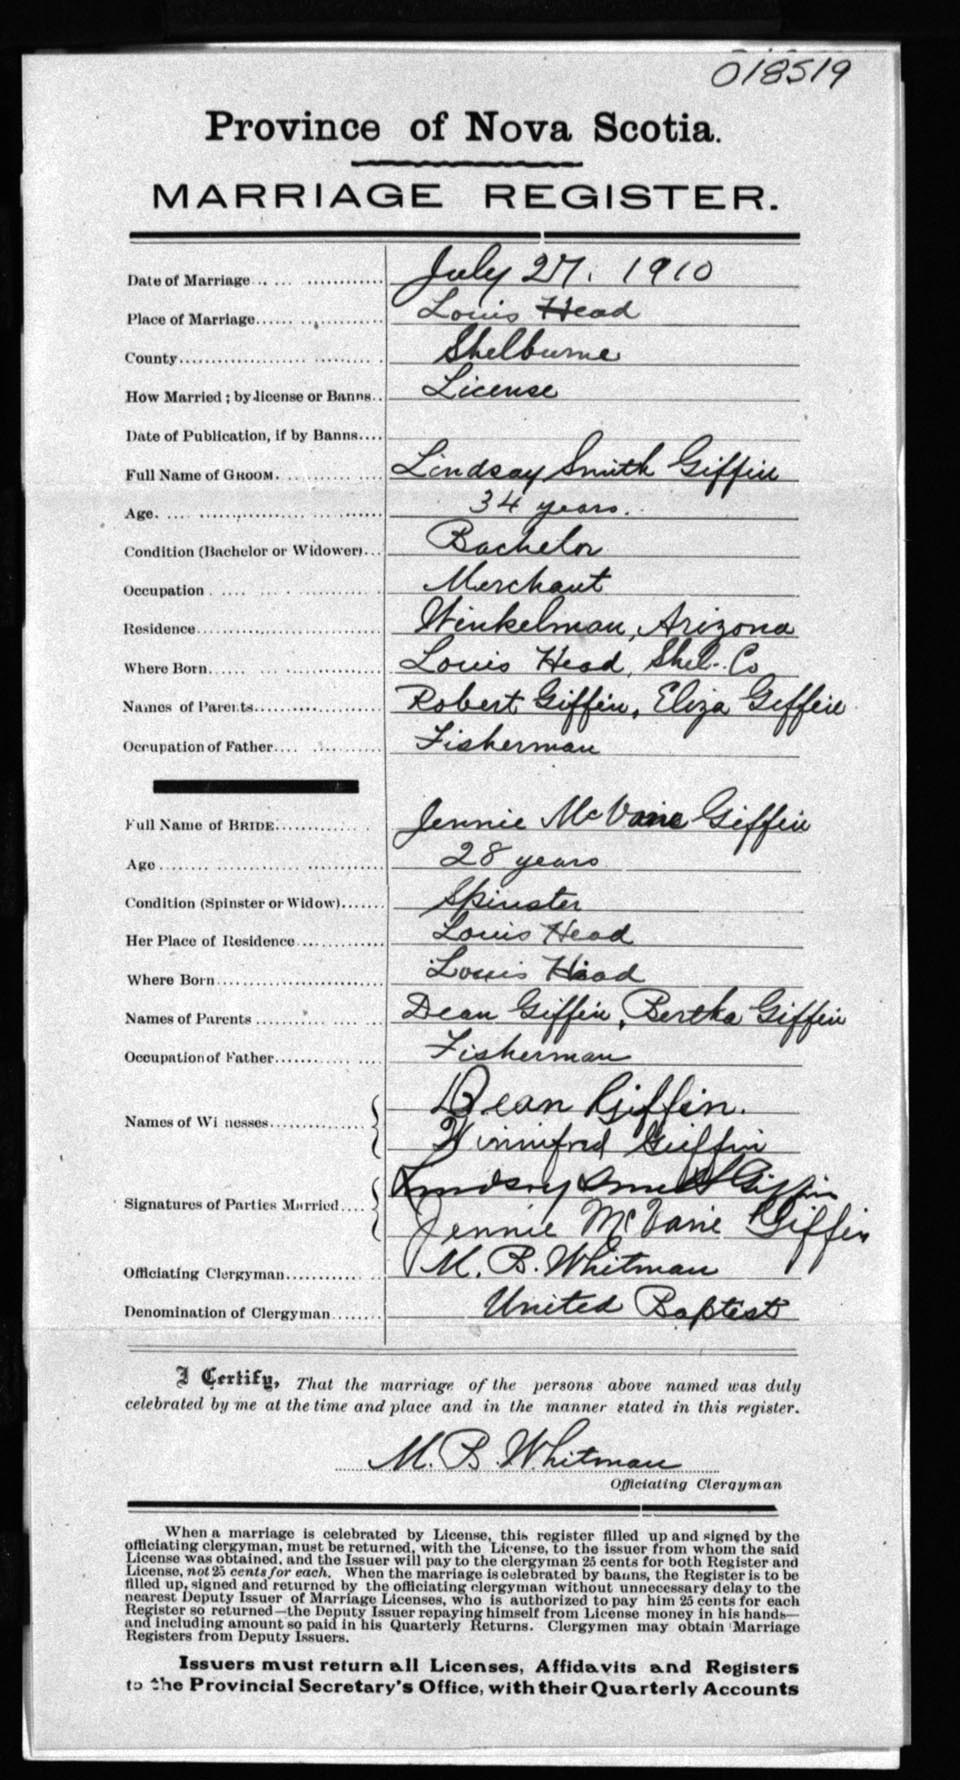 018519
Province of Nova Scotia.
MARRIAGE REGISTER.
Date of Marriage........ July 27. 1910
Place of Marriage........ Louis Head
County........ Shelburne
How Married; by license or Banns.. License
Date of Publication, if by Banns....
Full Name of GROOM........ Lindsay Smith Giffin
Age........ 34 years.
Condition (Bachelor or Widower)... Bachelor
Occupation........ Merchant
Residence........ Winkelman, Arizona
Where Born........ Louis Head, Shel. Co
Names of Parents........ Robert Giffin, Eliza Giffin
Occupation of Father........ Fisherman
Full Name of BRIDE........ Jennie McVane Giffin
Age........ 28 years
Condition (Spinster or Widow)....... Spinster
Her Place of Residence........ Louis Head
Where Born........ Louis Head
Names of Parents........ Dean Giffin, Bertha Giffin
Occupation of Father........ Fisherman
Names of Witnesses........ Dean Giffin.
Winnifred Giffin
Signatures of Parties Married.... Lindsay Smith Giffin
Jennie McVane Giffin
Officiating Clergyman........ M. B. Whitman
Denomination of Clergyman........ United Baptist
I Certify, That the marriage of the persons above named was duly
celebrated by me at the time and place and in the manner stated in this register.
M. B. Whitman
Officiating Clergyman
When a marriage is celebrated by License, this register filled up and signed by the
officiating clergyman, must be returned, with the License, to the issuer from whom the said
License was obtained, and the Issuer will pay to the clergyman 25 cents for both Register and
License, not 25 cents for each. When the marriage is celebrated by banns, the Register is to be
filled up, signed and returned by the officiating clergyman without unnecessary delay to the
nearest Deputy Issuer of Marriage Licenses, who is authorized to pay him 25 cents for each
Register so returned—the Deputy Issuer repaying himself from License money in his hands—
and including amount so paid in his Quarterly Returns. Clergymen may obtain Marriage
Registers from Deputy Issuers.
Issuers must return all Licenses, Affidavits and Registers
to the Provincial Secretary's Office, with their Quarterly Accounts